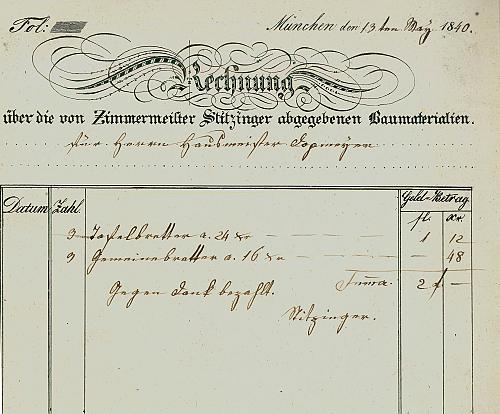 Fol:
München den 13ten May 1840.
Rechnung
über die von Zimmermeister Stitzinger abgegebenen Baumaterialien.
für Herrn Hausmeister
Datum Zahl. Geld-Betrag
fl. xr
3 Tafelbretter a. 24 xr 1 12
3 Gemeinebretter a. 16 xr 48
Summa. 2 f —
Gegen Dank bezahlt.
Stitzinger.